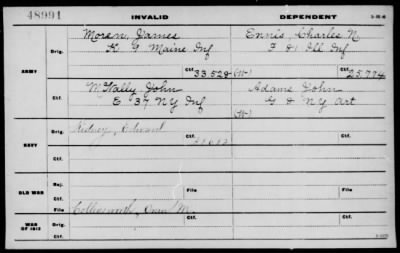 48991 INVALID DEPENDENT
Moren, James Ennis, Charles N.
Orig. K 9 Maine Inf F 81 Ill Inf
ARMY Ctf. 33.528 (W) Ctf. 25.774
McNally, John Adams John
Ctf. E 37 N.Y Inf G 2 N.Y Art
(W)
Orig. Kidney, Edward
NAVY
Ctf.
Rej.
OLD WAR File File
Ctf.
Orig.
WAR OF 1812
Ctf.